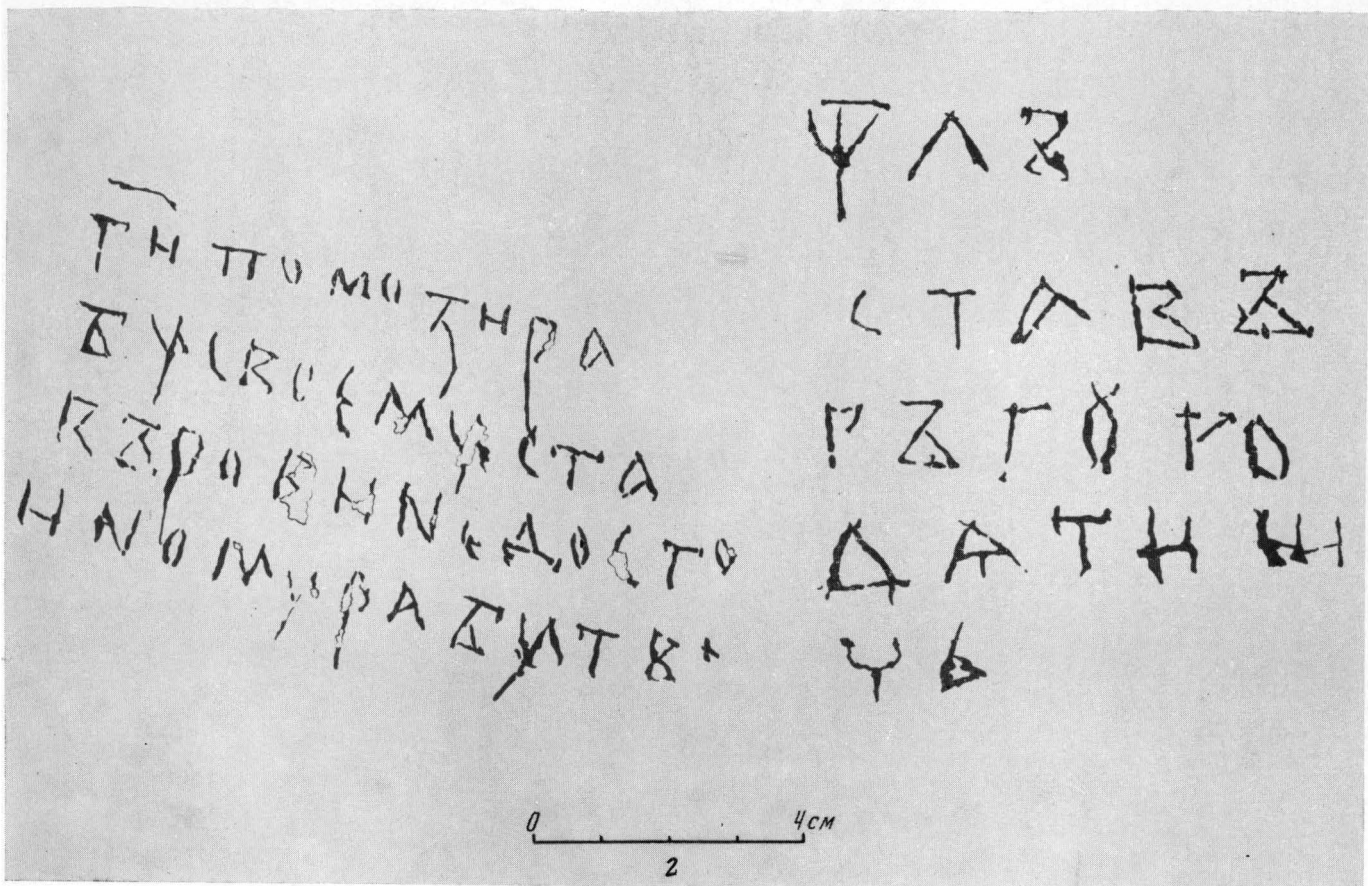 Г҃И ПОМОЗИ РА
БУ СВОЕМУ СТА
ВЪРОВИ НЕДОСТО
ИНОМУ РАБУ ТВ+
ѰЛЪ
СТАВЪ
РЪ ГОРО
ДАТИНИ
ЧЬ
0 4 см
2